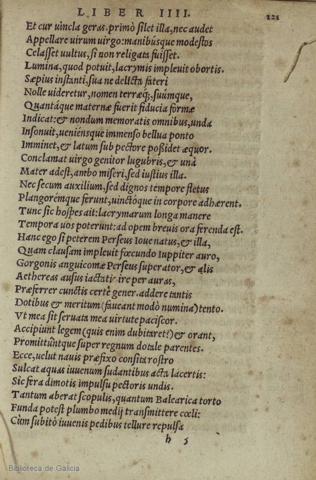 LIBER IIII.
121
Et cur uincla geras. primò silet illa, nec audet
Appellare uirum uirgo: manibúsque modestos
Celasset uultus, si non religata fuisset.
Lumina, quod potuit, lacrymis impleuit obortis.
Sæpius instanti, sua ne delicta fateri
Nolle uideretur, nomen terræq́;, suúmque,
Quantáque maternæ fuerit fiducia formæ
Indicat: & nondum memoratis omnibus, unda
Insonuit, ueniénsque immenso bellua ponto
Imminet, & latum sub pectore possidet æquor.
Conclamat uirgo genitor lugubris, & unà
Mater adest, ambo miseri, sed iustius illa.
Nec secum auxilium, sed dignos tempore fletus
Plangorémque ferunt, uinctóque in corpore adhærent.
Tunc sic hospes ait: lacrymarum longa manere
Tempora uos poterunt: ad opem breuis ora ferenda est.
Hanc ego si peterem Perseus Ioue natus, & illa,
Quam clausam impleuit fœcundo Iuppiter auro,
Gorgonis anguicomæ Perseus superator, & alis
Aethereas ausus iactatis ire per auras,
Præferrer cunctis certè gener. addere tantis
Dotibus & meritum (faueant modò numina) tento.
Vt mea sit seruata mea uirtute paciscor.
Accipiunt legem (quis enim dubitaret?) & orant,
Promittúntque super regnum dotale parentes.
Ecce, uelut nauis præfixo concita rostro
Sulcat aquas iuuenum sudantibus acta lacertis:
Sic fera dimotis impulsu pectoris undis.
Tantum aberat scopulis, quantum Balearica torto
Funda potest plumbo medij transmittere cœli:
Cùm subitò iuuenis pedibus tellure repulsa
h 5
Biblioteca de Galicia